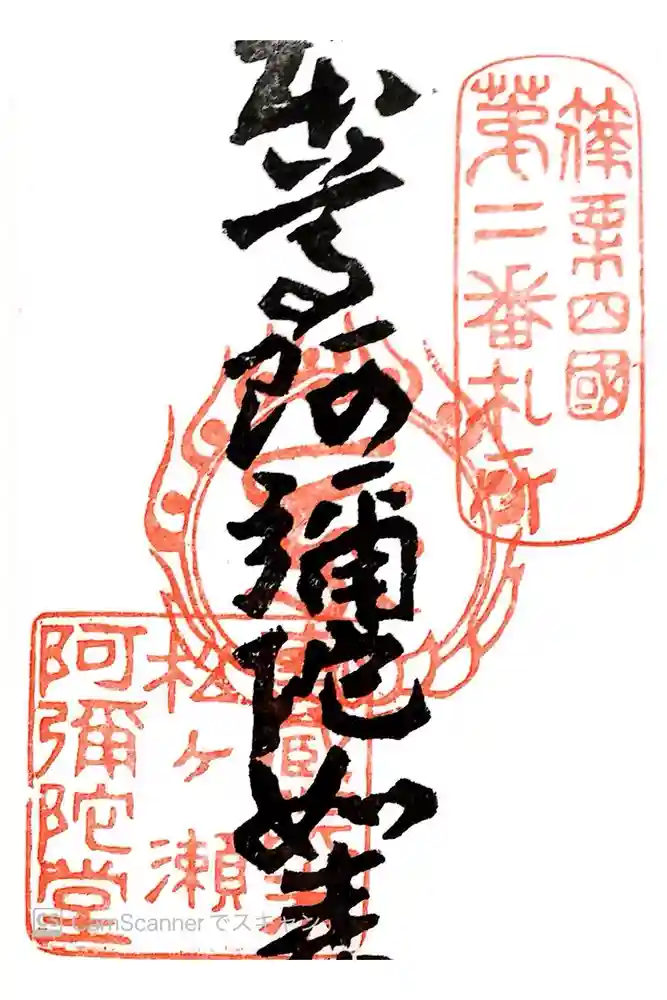 篠栗四國
第二番札所
本尊阿彌陀如来
松ヶ瀬
阿彌陀堂
CamScanner でスキャン